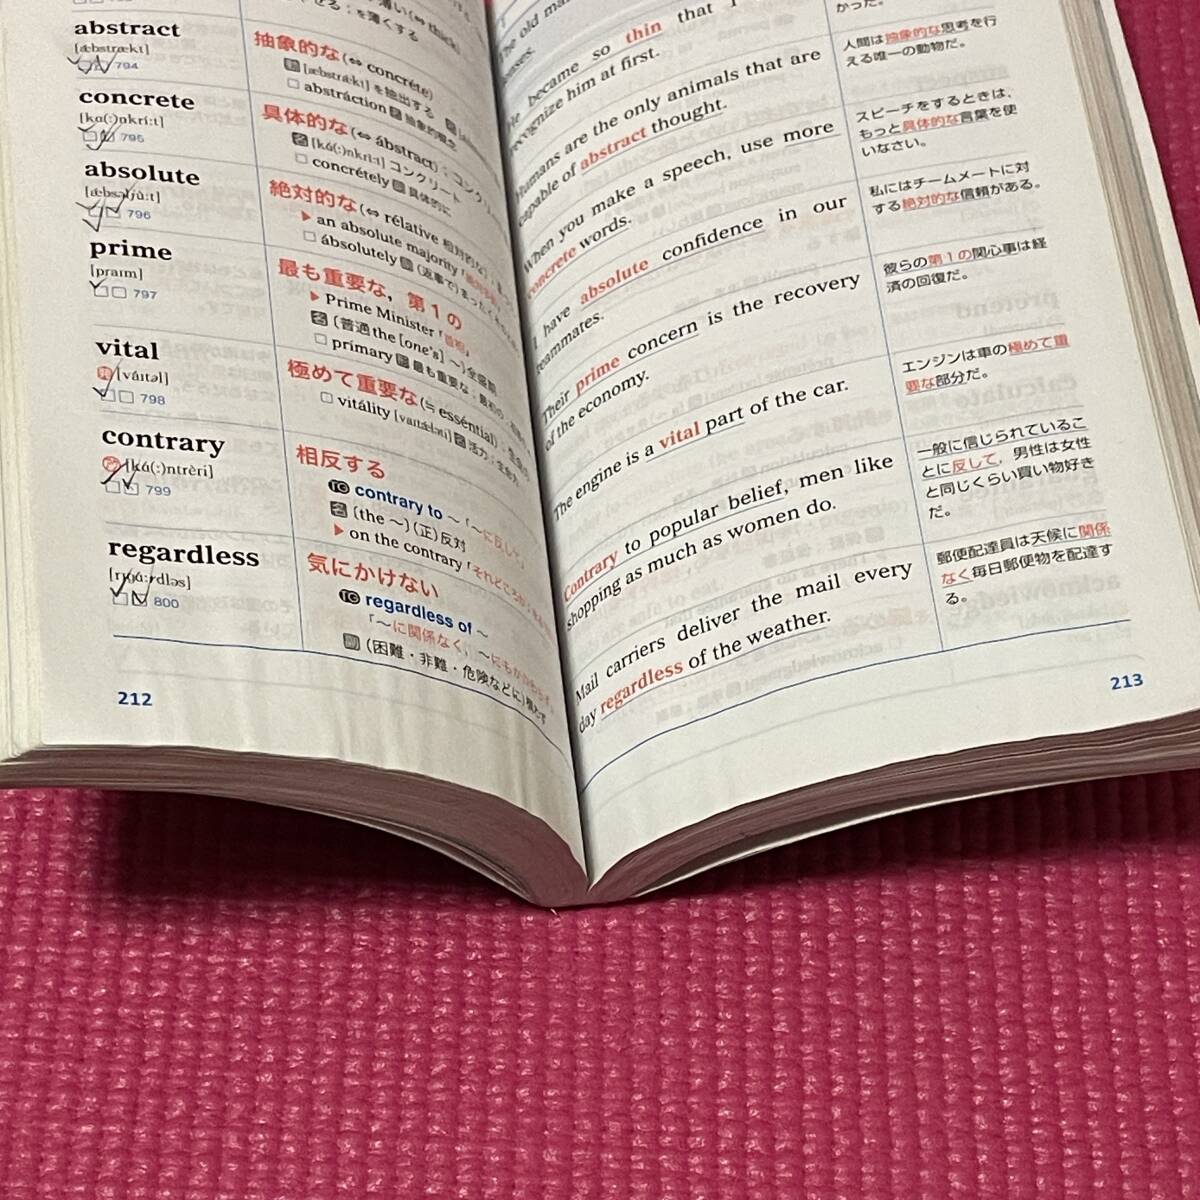 abstract
[æbstrækt]
794
抽象的な(⇔ concréte)
[æbstrækt] を抽出する
abstráction 名 抽象的概念
concrete
[kɑ(:)nkríːt]
795
具体的な(⇔ ábstract)
名 [kɑ́(:)nkriːt] コンクリート
concrétely 副 具体的に
absolute
796
絶対的な(⇔ rélative 相対的な)
▶ an absolute majority
ábsolutely 副 (返事で)
prime
[praɪm]
797
最も重要な, 第1の
▶ Prime Minister「首相」
名 (普通 the [one's] ~) 全盛期
primary 形 最も重要な
vital
[váɪtəl]
798
極めて重要な(≒ esséntial)
vitálity [vaɪtǽləti] 名 活力
contrary
ア [kɑ́(:)ntrèri]
799
相反する
TG contrary to ~「~に反して」
名 [the ~] (正)反対
▶ on the contrary
regardless
800
気にかけない
TG regardless of ~
「~に関係なく,
副 (困難・非難・危険などに)
212
The old
became so thin that I
recognize him at first.
Humans are the only animals that are
capable of abstract thought.
人間は抽象的な思考を行
える唯一の動物だ。
When you make a speech, use more
concrete words.
スピーチをするときは、
もっと具体的な言葉を使
いなさい。
I have absolute confidence in our
teammates.
私にはチームメートに対
する絶対的な信頼がある。
Their prime concern is the recovery
of the economy.
彼らの第1の関心事は経
済の回復だ。
The engine is a vital part of the car.
エンジンは車の極めて重
要な部分だ。
Contrary to popular belief, men like
shopping as much as women do.
一般に信じられているこ
とに反して、男性は女性
と同じくらい買い物好き
だ。
Mail carriers deliver the mail every
day regardless of the weather.
郵便配達員は天候に関係
なく毎日郵便物を配達す
る。
213